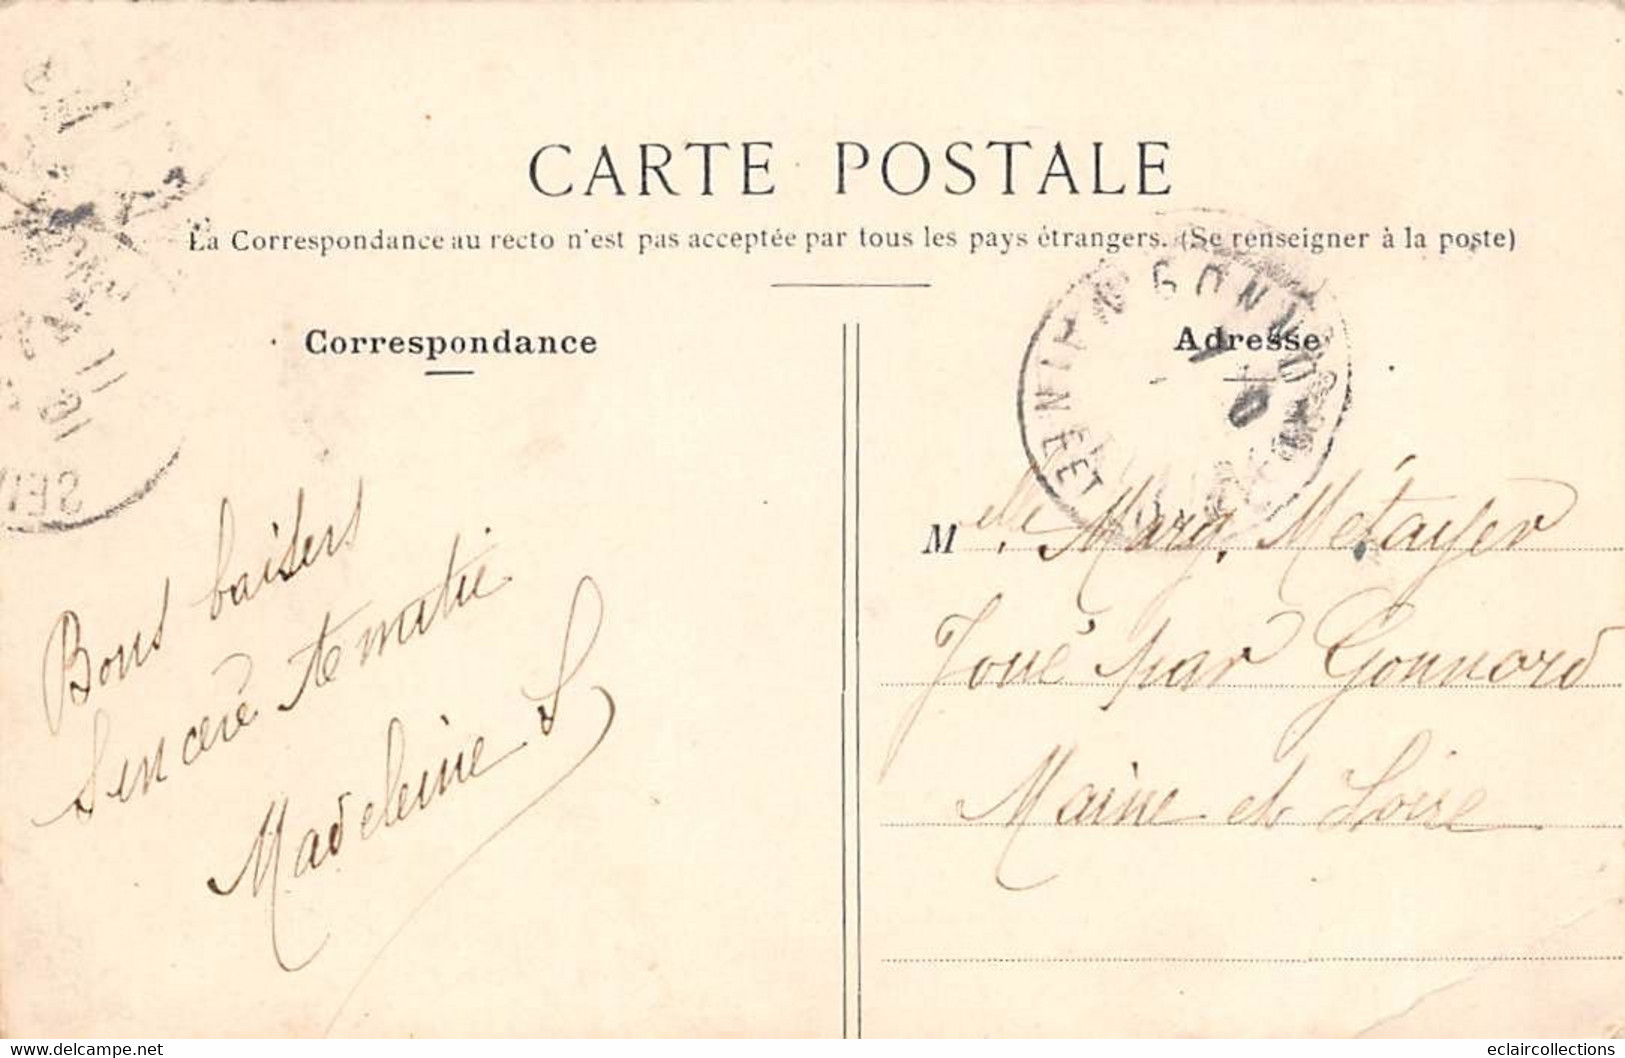 CARTE POSTALE
La Correspondance au recto n'est pas acceptée par tous les pays étrangers. (Se renseigner à la poste)
Correspondance
Bons baisers
Sincère
Madeleine S
Adresse
Mlle Marg. Métayer
Joué par Gonnord
Maine et Loire
GONNORD
MAINE ET
10
11
SEI
www.delcampe.net
eclaircollections